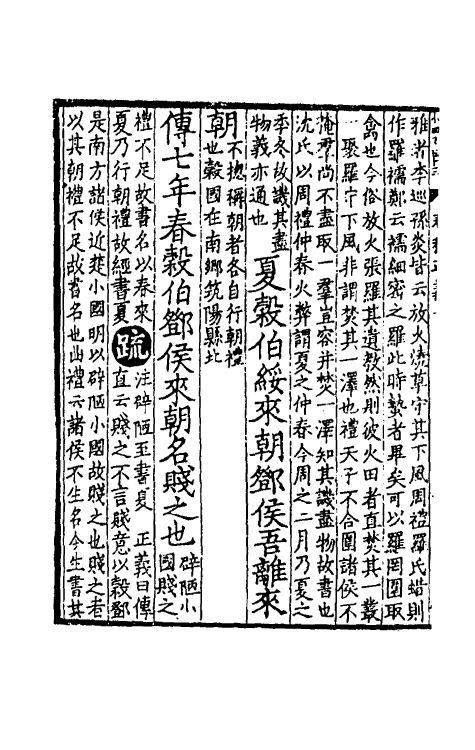 雅者李巡孫炎皆云放火燒草守其下風周禮羅氏蜡則
作羅襦鄭云襦細密之羅此時蟄者畢矣可以羅罔圍取
禽也今俗放火張羅其遺敎然則彼火田者直焚其一叢
一聚羅守下風非謂焚其一澤也禮天子不合圍諸侯不
掩羣尚不盡取一羣豈容并焚一澤知其譏盡物故書也
沈氏以周禮仲春火弊謂夏之仲春今周之二月乃夏之
季冬故譏其盡
物義亦通也
夏穀伯綏來朝鄧侯吾離來
朝
不揔稱朝者各自行朝禮
也穀國在南鄉筑陽縣北
傳七年春穀伯鄧侯來朝名賤之也
辟陋小
國賤之
禮不足故書名以春來
夏乃行朝禮故經書夏
疏
注辟陋至書夏 正義曰傳
直云賤之不言賤意以穀鄧
是南方諸侯近楚小國明以辟陋小國故賤之也賤之者
以其朝禮不足故書名也曲禮云諸侯不生名今生書其